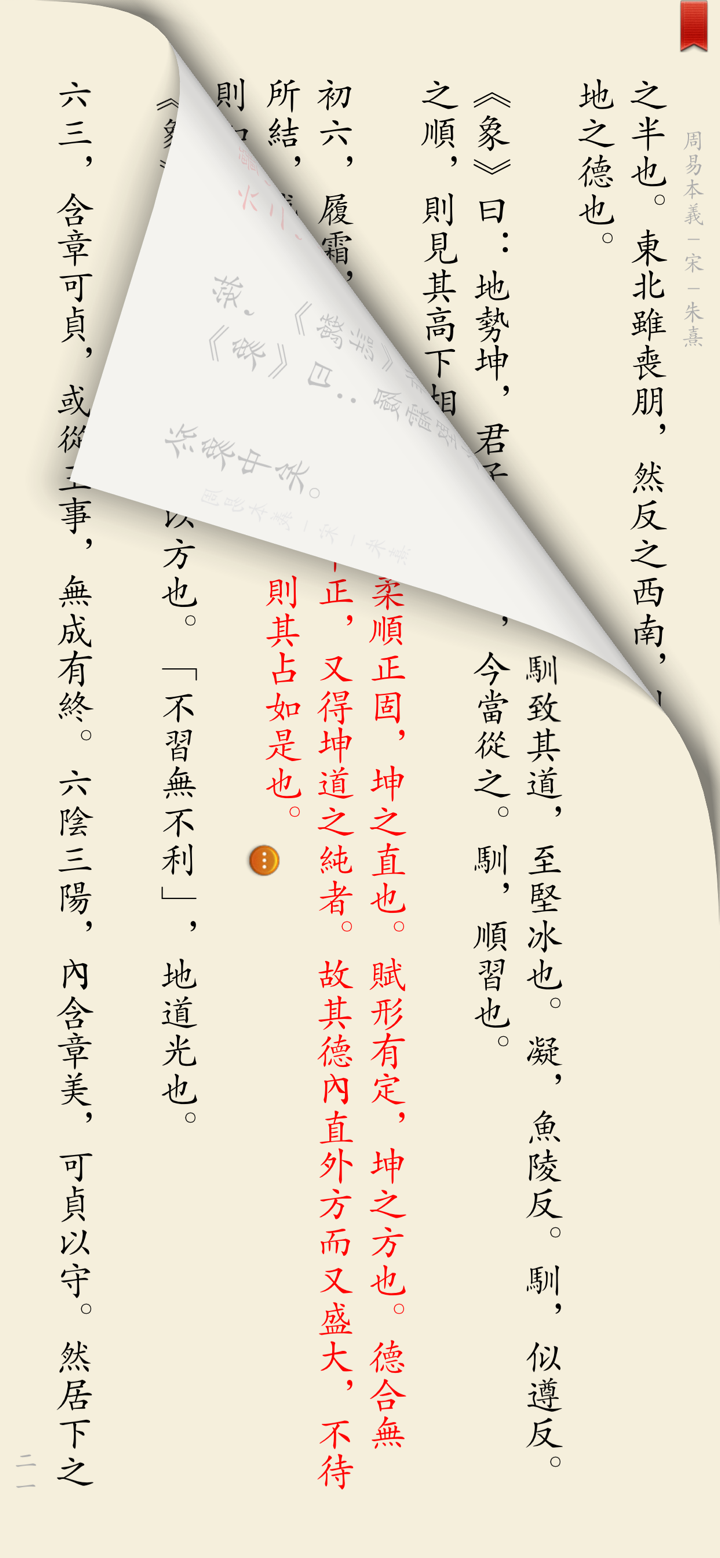 周易本義－宋－朱熹
之半也。東北雖喪朋，然反之西南，
地之德也。
馴致其道，至堅冰也。凝，魚陵反。馴，似遵反。
《象》曰：地勢坤，君子，今當從之。馴，順習也。
之順，則見其高下相
柔順正固，坤之直也。賦形有定，坤之方也。德合無
初六，履霜，正，又得坤道之純者。故其德內直外方而又盛大，不待
所結，則其占如是也。
則
《象》以方也。「不習無不利」，地道光也。
六三，含章可貞，或從王事，無成有終。六陰三陽，內含章美，可貞以守。然居下之
二一